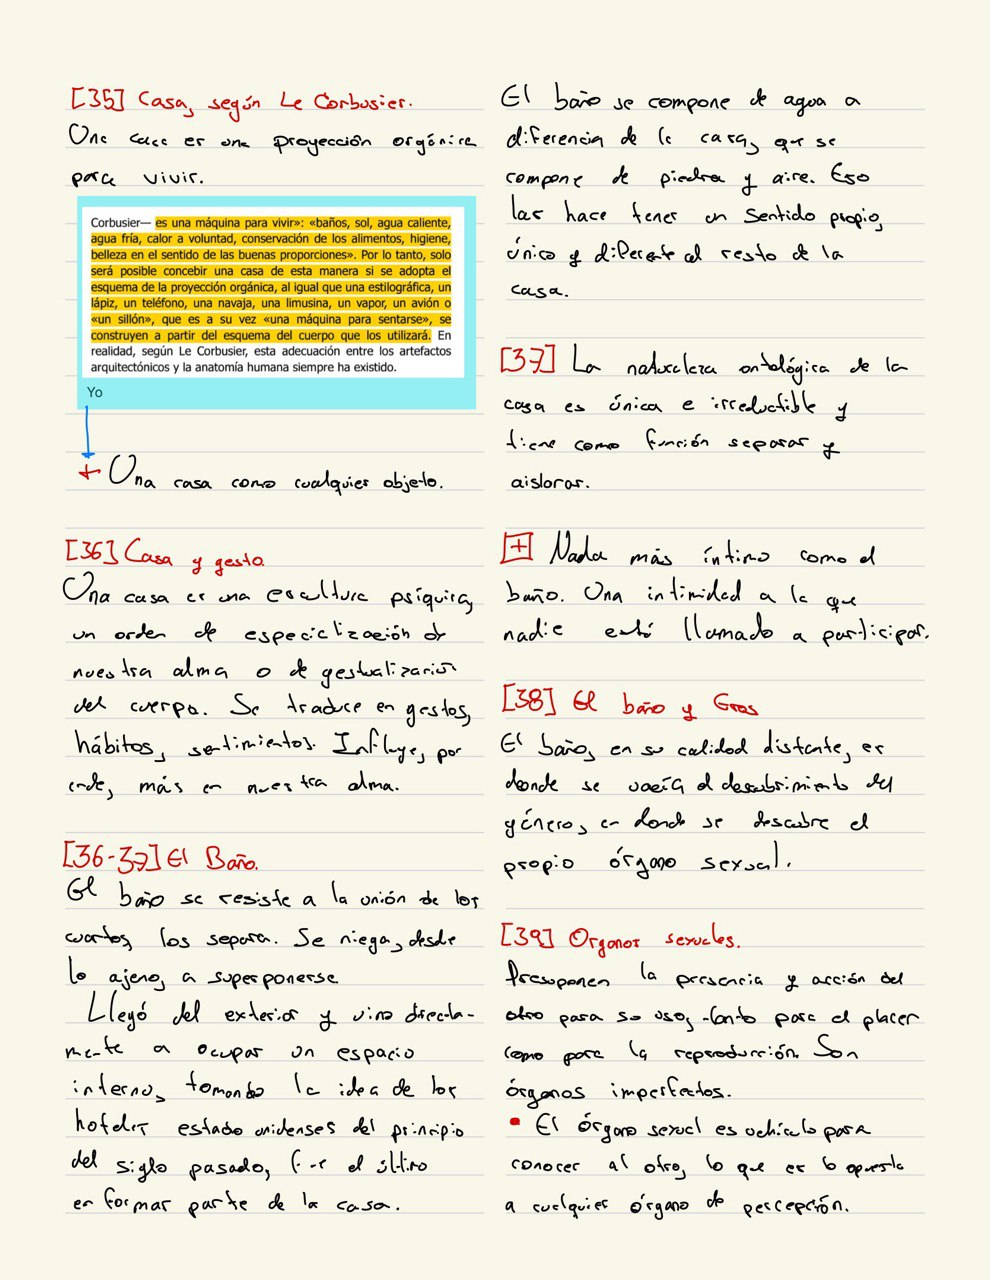 [35] Casa, según Le Corbusier.
Una casa es una proyección orgánica
para vivir.
Corbusier— es una máquina para vivir»: «baños, sol, agua caliente,
agua fría, calor a voluntad, conservación de los alimentos, higiene,
belleza en el sentido de las buenas proporciones». Por lo tanto, solo
será posible concebir una casa de esta manera si se adopta el
esquema de la proyección orgánica, al igual que una estilográfica, un
lápiz, un teléfono, una navaja, una limusina, un vapor, un avión o
«un sillón», que es a su vez «una máquina para sentarse», se
construyen a partir del esquema del cuerpo que los utilizará. En
realidad, según Le Corbusier, esta adecuación entre los artefactos
arquitectónicos y la anatomía humana siempre ha existido.
Yo
+ Una casa como cualquier objeto.
[36] Casa y gesto.
Una casa es una escultura psíquica,
un orden de especialización de
nuestra alma o de gestualización
del cuerpo. Se traduce en gestos,
hábitos, sentimientos. Influye, por
ende, más en nuestra alma.
[36-37] El Baño.
El baño se resiste a la unión de los
cuartos, los separa. Se niega, desde
lo ajeno, a superponerse
Llegó del exterior y vino directa-
mente a ocupar un espacio
interno, tomando la idea de los
hoteles estadounidenses del principio
del siglo pasado, fue el último
en formar parte de la casa.
El baño se compone de agua a
diferencia de la casa, que se
compone de piedra y aire. Eso
las hace tener un sentido propio,
único y diferente al resto de la
casa.
[37] La naturaleza ontológica de la
casa es única e irreductible y
tiene como función separar y
aislorar.
[+] Nada más íntimo como el
baño. Una intimidad a la que
nadie está llamado a participar.
[38] El baño y Eros
El baño, en su calidad distante, es
donde se vacía el descubrimiento del
género, en donde se descubre el
propio órgano sexual.
[39] Organos sexuales.
Presuponen la presencia y acción del
otro para su uso, tanto para el placer
como para la reproducción. Son
órganos imperfectos.
• El órgano sexual es vehículo para
conocer al otro, lo que es lo opuesto
a cualquier órgano de percepción.